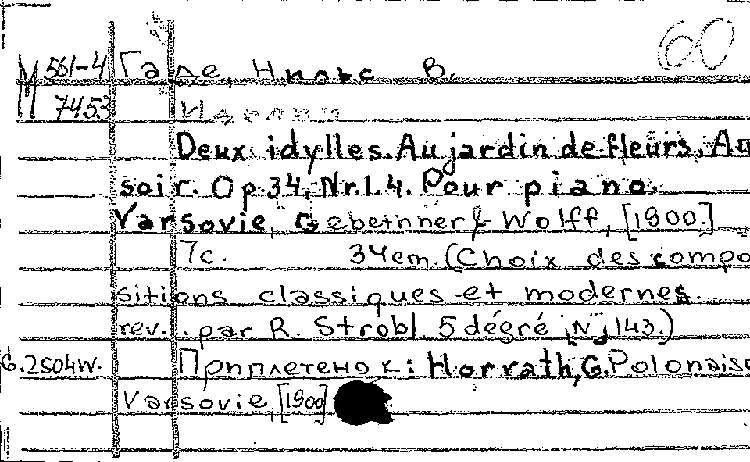 60
М 561-4 Гаде, Нильс В.
7453 Идеалы
Deux idylles. Au jardin de fleurs. Au
soir. Op 34, Nr.1.4. Pour piano.
Varsovie, Gebethner & Wolff, [1900]
7с. 34cm. (Choix des compo
sitions classiques et modernes
rev. par R. Strobl 5 dégré N 143.)
G.2504W. Приплетено к: Horvath, G. Polonaise
Varsovie, [1900]